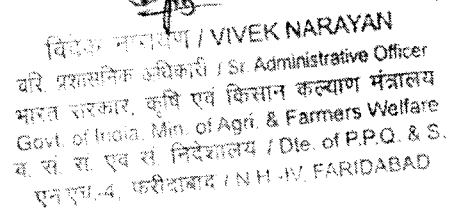 विवेक नारायण / VIVEK NARAYAN
वरि. प्रशासनिक अधिकारी / Sr. Administrative Officer
भारत सरकार, कृषि एवं किसान कल्याण मंत्रालय
Govt. of India, Min. of Agri. & Farmers Welfare
व. सं. रा. एवं सं. निदेशालय / Dte. of P.P.Q. & S.
एन एच.-4, फरीदाबाद / N H -IV, FARIDABAD